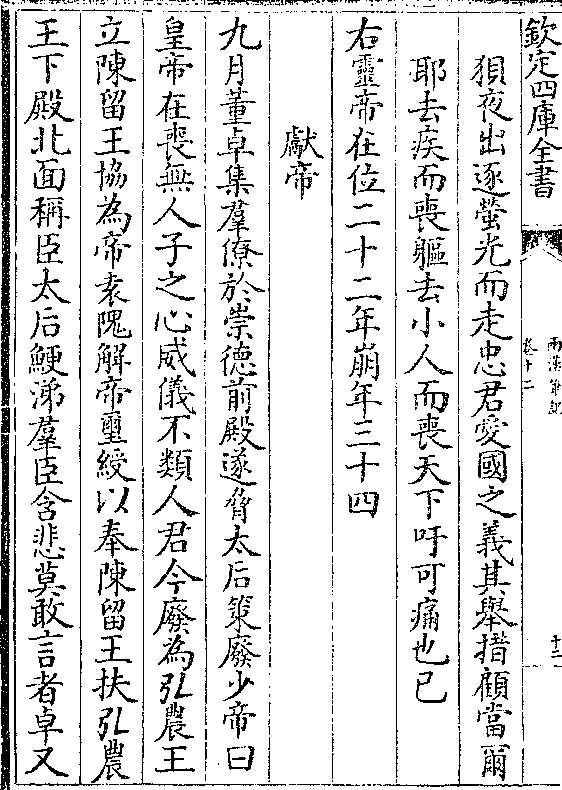 欽定四庫全書
兩漢筆記
卷十二
十二
狽夜出逐螢光而走忠君愛國之義其舉措顧當爾
耶去疾而喪軀去小人而喪天下吁可痛也已
右靈帝在位二十二年崩年三十四
獻帝
九月董卓集羣僚於崇德前殿遂脅太后策廢少帝曰
皇帝在喪無人子之心威儀不類人君今廢為弘農王
立陳留王協為帝袁隗解帝璽綬以奉陳留王扶弘農
王下殿北面稱臣太后鯁涕羣臣含悲莫敢言者卓又